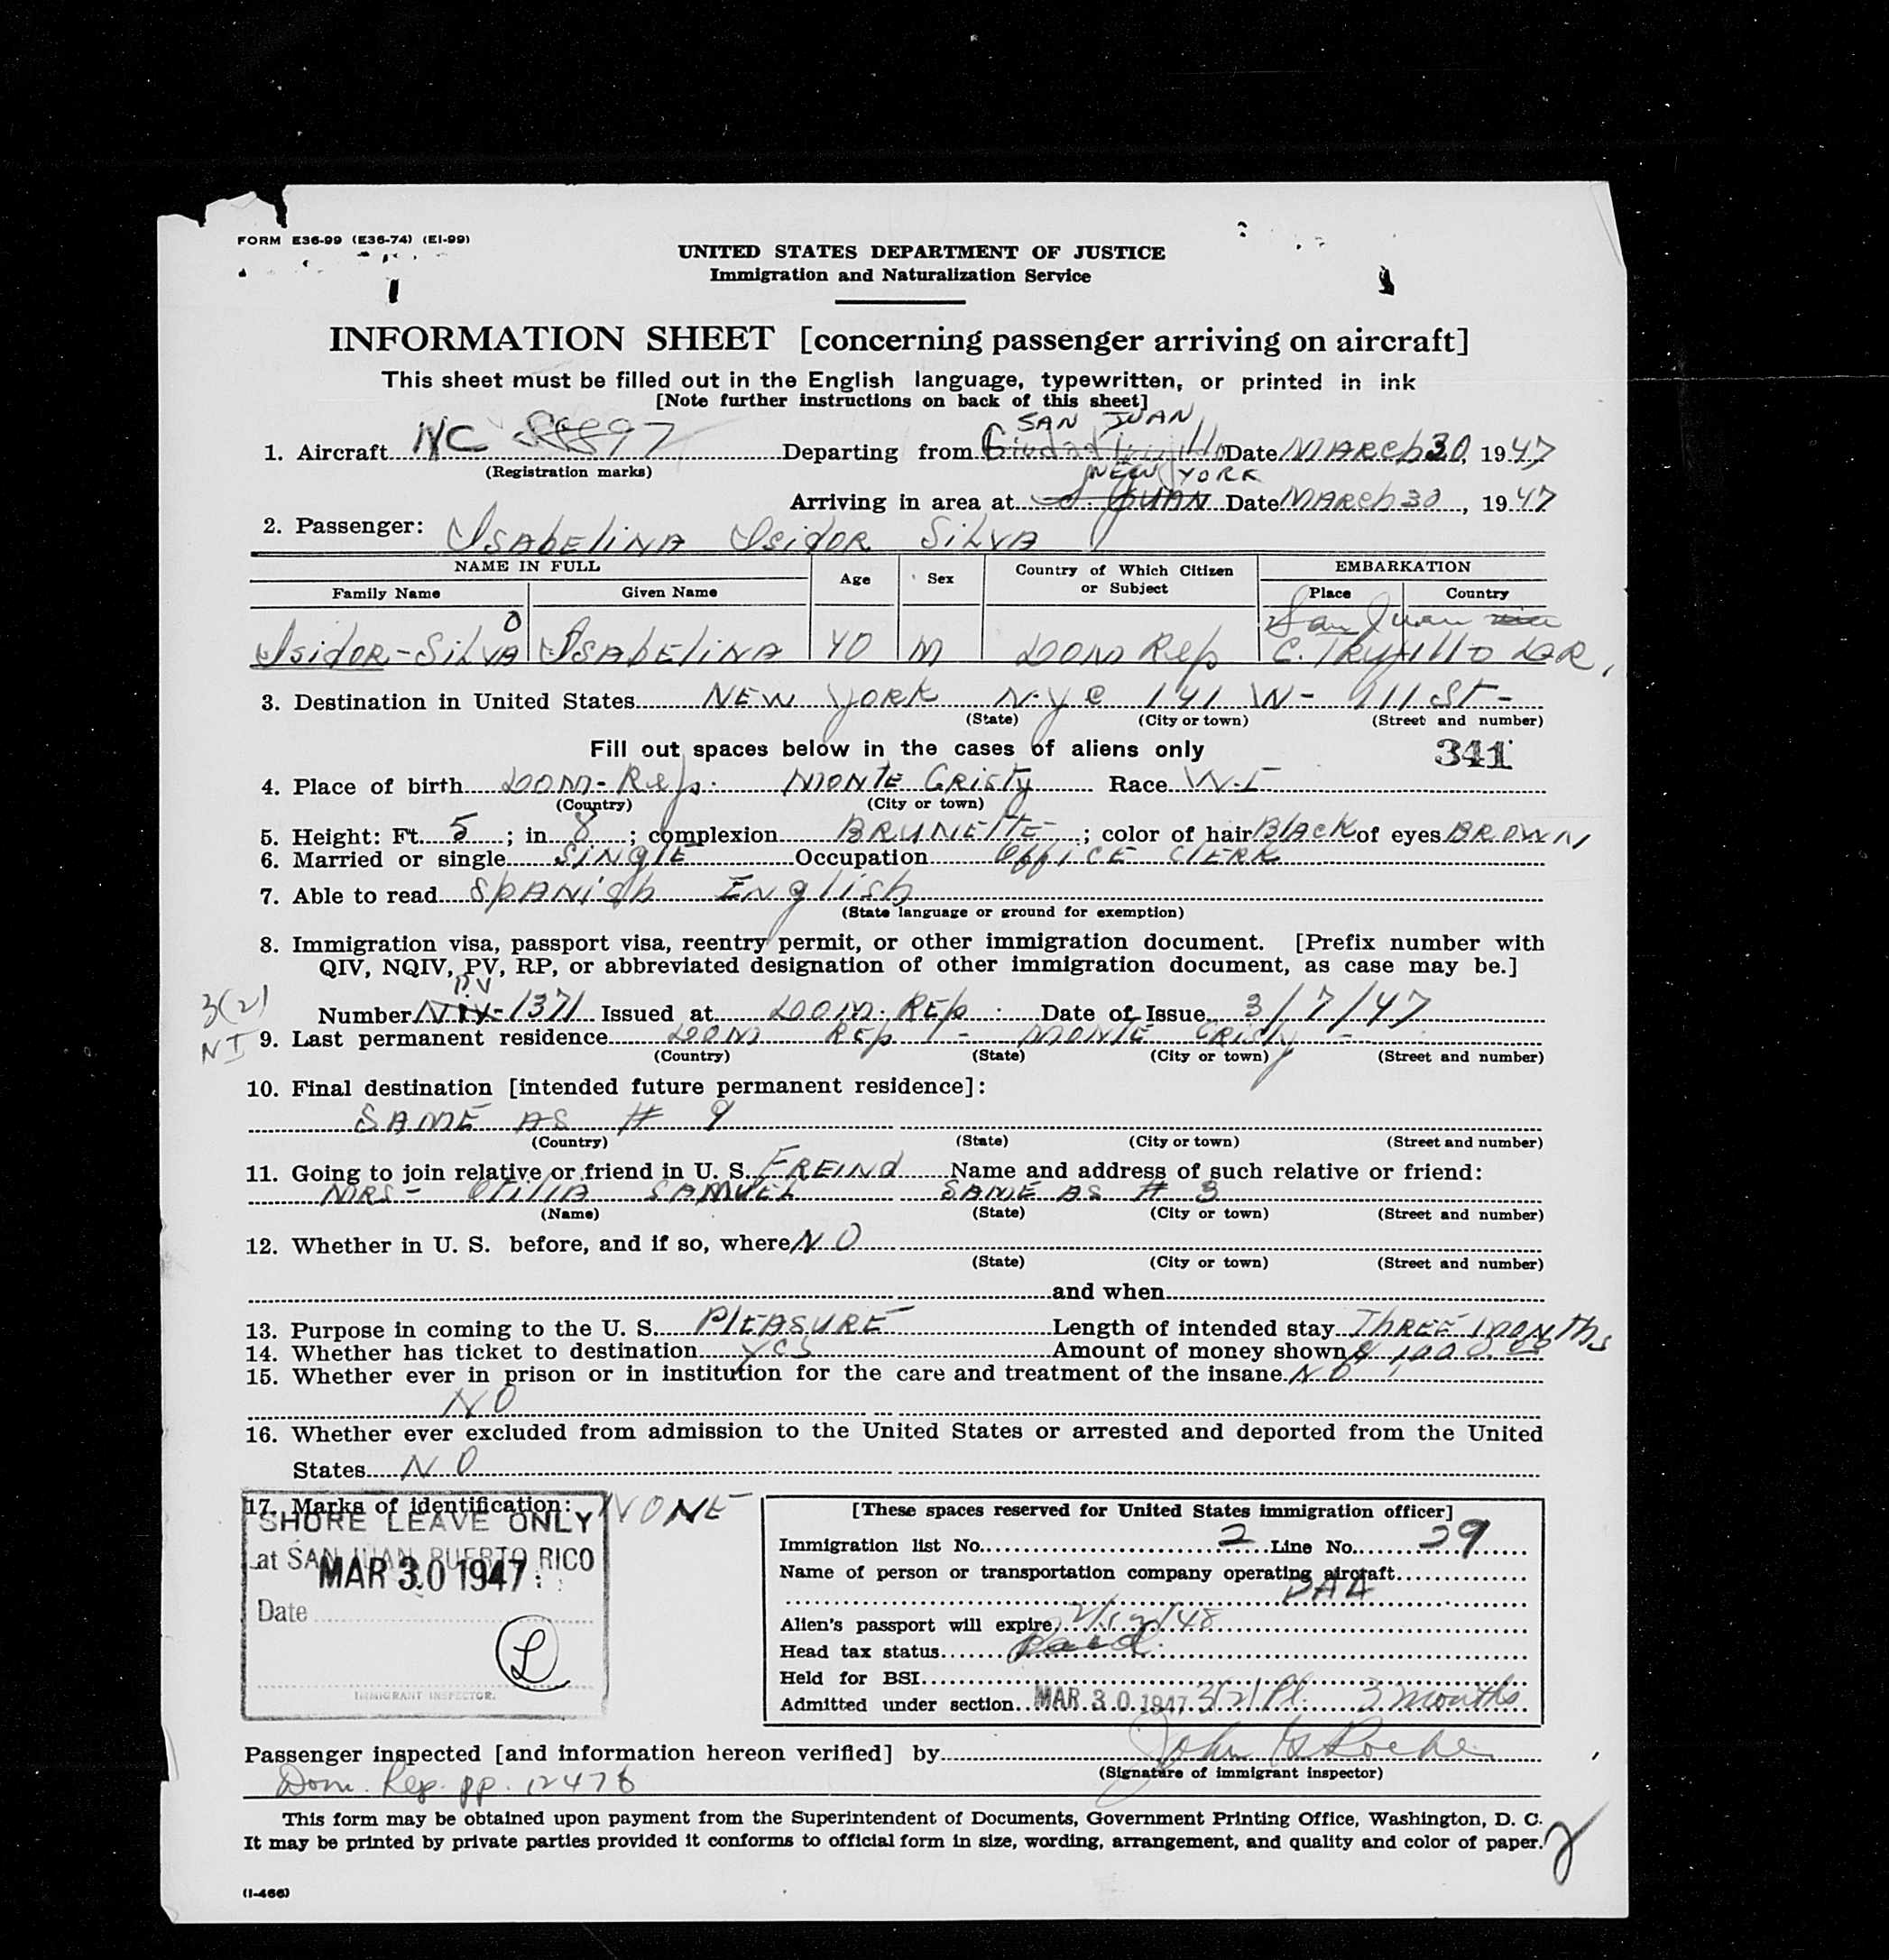 FORM E36-99 (E36-74) (E1-99)
UNITED STATES DEPARTMENT OF JUSTICE
Immigration and Naturalization Service
INFORMATION SHEET [concerning passenger arriving on aircraft]
This sheet must be filled out in the English language, typewritten, or printed in ink
[Note further instructions on back of this sheet]
SAN JUAN
1. Aircraft NC 88897 Departing from Ciudad Trujillo Date MARCh 30, 1947
(Registration marks)
NEW YORK
Arriving in area at S. JUAN Date MARCh 30, 1947
2. Passenger: ISAbELINA ISidOR SiLVA
NAME IN FULL Age Sex Country of Which Citizen or Subject EMBARKATION
Family Name Given Name Place Country
O San Juan
ISidOR-SiLVA ISAbELINA 40 M DOM Rep C. TRujillo D.R.
3. Destination in United States NEW YORK N.Y C 141 W- 111 ST-
(State) (City or town) (Street and number)
Fill out spaces below in the cases of aliens only 341
4. Place of birth DOM-Rep. MONTE CRISTy Race W-I
(Country) (City or town)
5. Height: Ft. 5; in 8; complexion BRUNETTE; color of hair BlACK of eyes BROWN
6. Married or single SINGlE Occupation OffiCE ClERK
7. Able to read SpANish ENglish
(State language or ground for exemption)
8. Immigration visa, passport visa, reentry permit, or other immigration document. [Prefix number with
QIV, NQIV, PV, RP, or abbreviated designation of other immigration document, as case may be.]
PV
3(2)
Number NIV-1371 Issued at DOM. REp. Date of Issue 3/7/47
NI
9. Last permanent residence DOM REp - MONTE CRISTy -
(Country) (State) (City or town) (Street and number)
10. Final destination [intended future permanent residence]:
SAME AS # 9
(Country) (State) (City or town) (Street and number)
11. Going to join relative or friend in U. S. FREINd Name and address of such relative or friend:
MRS- OTiliA SAMUEL SAME AS # 3
(Name) (State) (City or town) (Street and number)
12. Whether in U. S. before, and if so, where NO
(State) (City or town) (Street and number)
and when
13. Purpose in coming to the U. S. PlEASURE Length of intended stay ThREE MONThs
14. Whether has ticket to destination yes Amount of money shown $
15. Whether ever in prison or in institution for the care and treatment of the insane NO
NO
16. Whether ever excluded from admission to the United States or arrested and deported from the United
States NO
17. Marks of identification: NONE
SHORE LEAVE ONLY
at SAN JUAN PUERTO RICO
MAR 30 1947
Date
L
IMMIGRANT INSPECTOR.
[These spaces reserved for United States immigration officer]
Immigration list No. 2 Line No. 29
Name of person or transportation company operating aircraft
PAA
Alien's passport will expire
Head tax status Paid
Held for BSI
Admitted under section MAR 30 1947 3(2) Pl. 3 months
Passenger inspected [and information hereon verified] by John
(Signature of immigrant inspector)
Dom. Rep. pp. 12476
This form may be obtained upon payment from the Superintendent of Documents, Government Printing Office, Washington, D. C.
It may be printed by private parties provided it conforms to official form in size, wording, arrangement, and quality and color of paper.
(I-466)